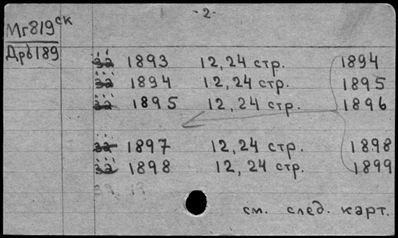 Мг819ск
Дрб189
- 2 -
за 1893 12, 24 стр. 1894
за 1894 12, 24 стр. 1895
за 1895 12, 24 стр. 1896
за 1897 12, 24 стр. 1898
за 1898 12, 24 стр. 1899
см. след. карт.